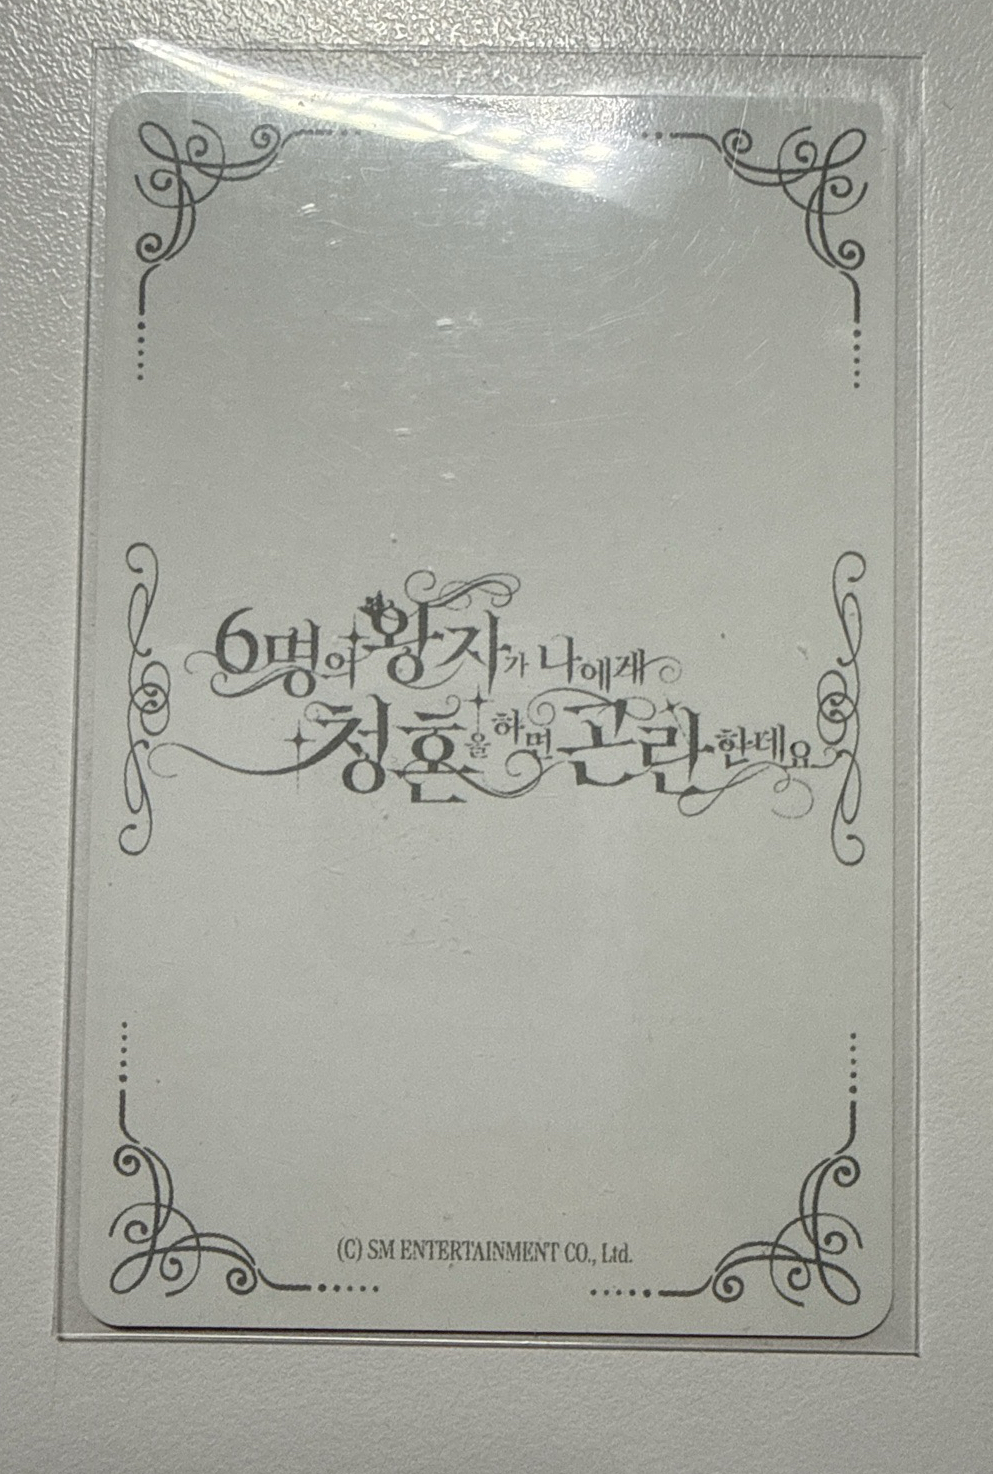 6명의 왕자가 나에게
청혼을 하면 곤란한데요
(C) SM ENTERTAINMENT CO., Ltd.